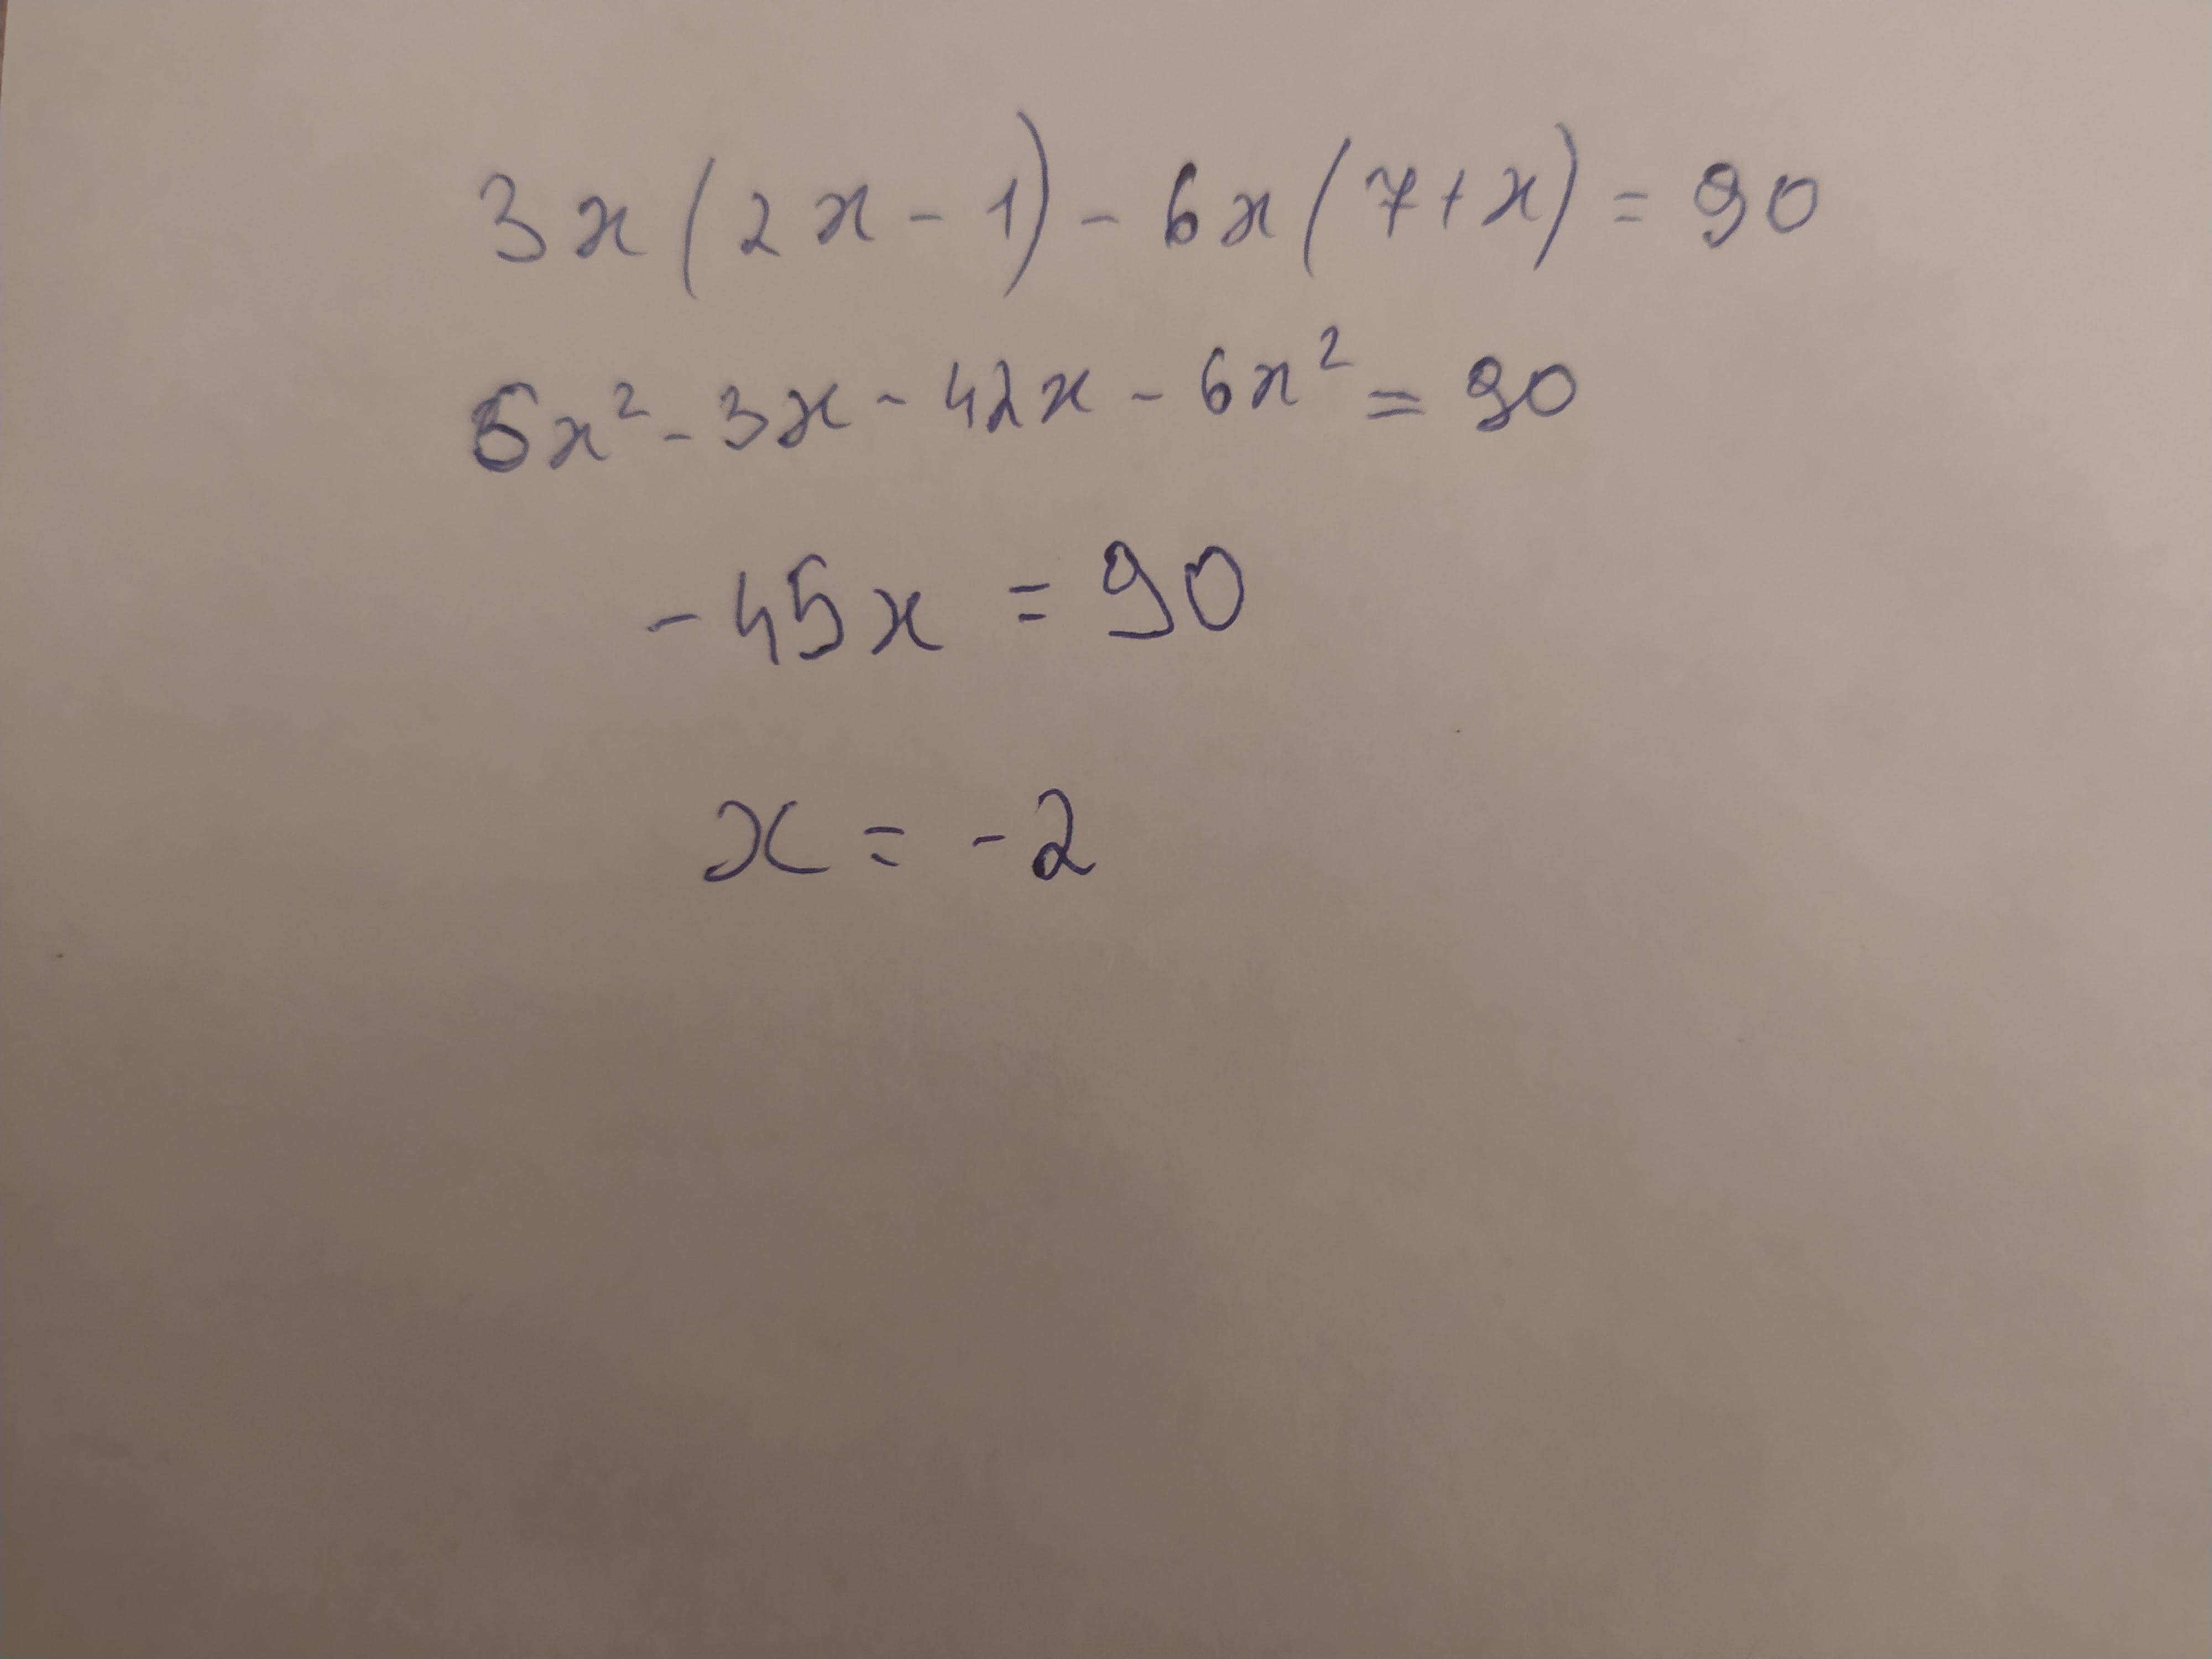 3x(2x-1)-6x(7+x)=90
6x²-3x-42x-6x²=90
-45x=90
x=-2